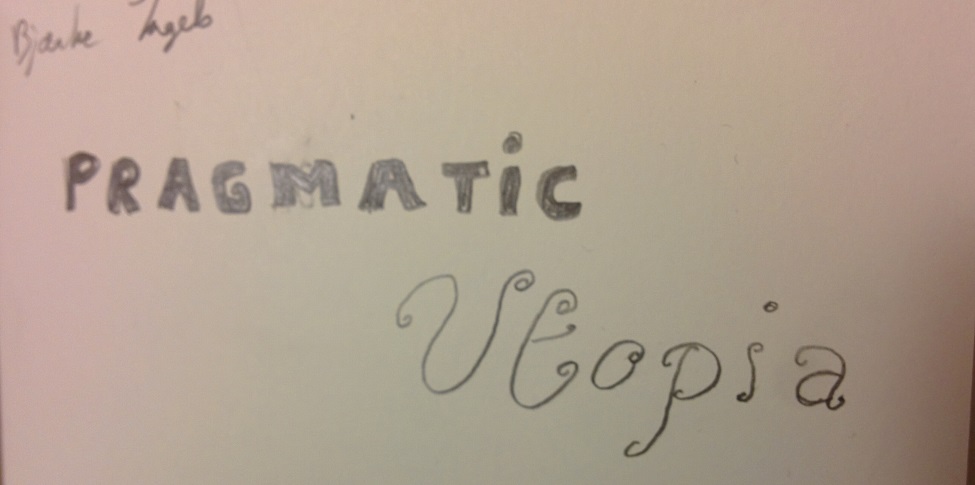 Bjarke Ingels
PRAGMATiC
Utopia